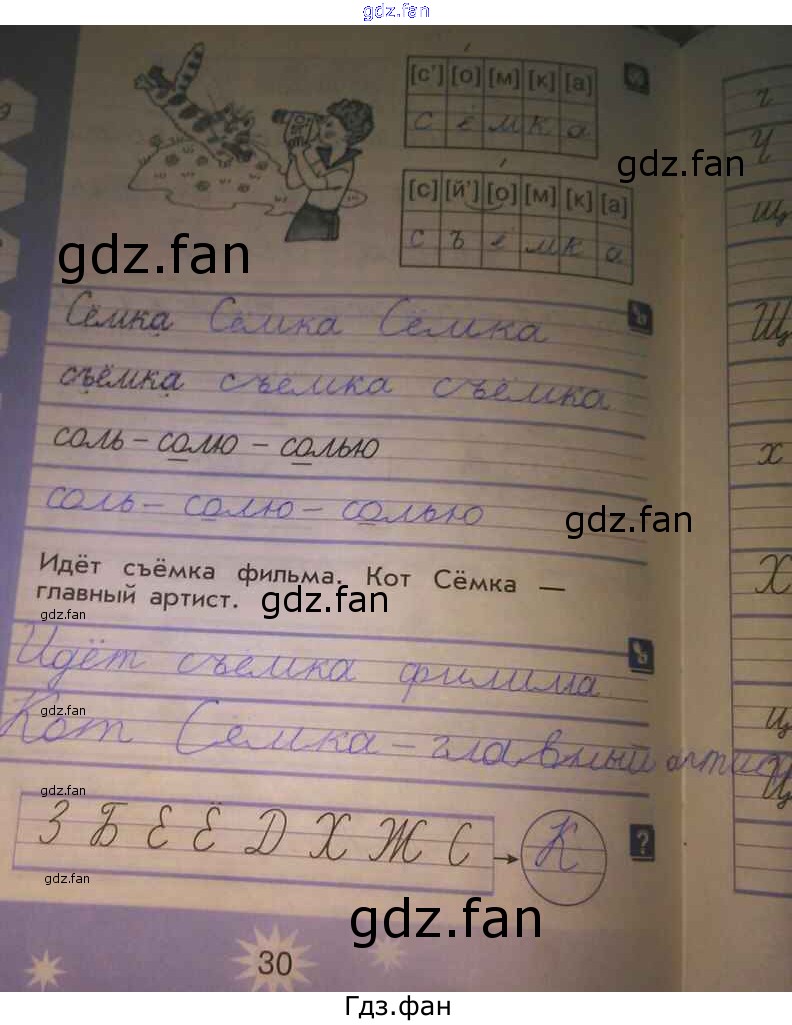 gdz.fan
[с'] [о] [м] [к] [а]
с ё м к а
gdz.fan
[с] [й'] [о] [м] [к] [а]
с ъ ё м к а
gdz.fan
Сёмка Сёмка Сёмка
съёмка съёмка съёмка
соль – солю – солью
соль – солю – солью
gdz.fan
Идёт съёмка фильма. Кот Сёмка —
главный артист.
gdz.fan
gdz.fan
Идёт съёмка фильма
gdz.fan
Кот Сёмка – главный
gdz.fan
З Б Е Ё Д Х Ж С К
?
gdz.fan
gdz.fan
30
г
Ч
щ
Щ
х
Х
ц
Ц
Гдз.фан